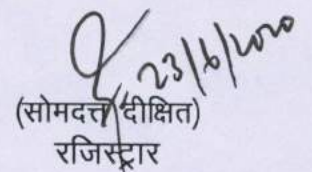 23/6/2020
(सोमदत्त दीक्षित)
रजिस्ट्रार